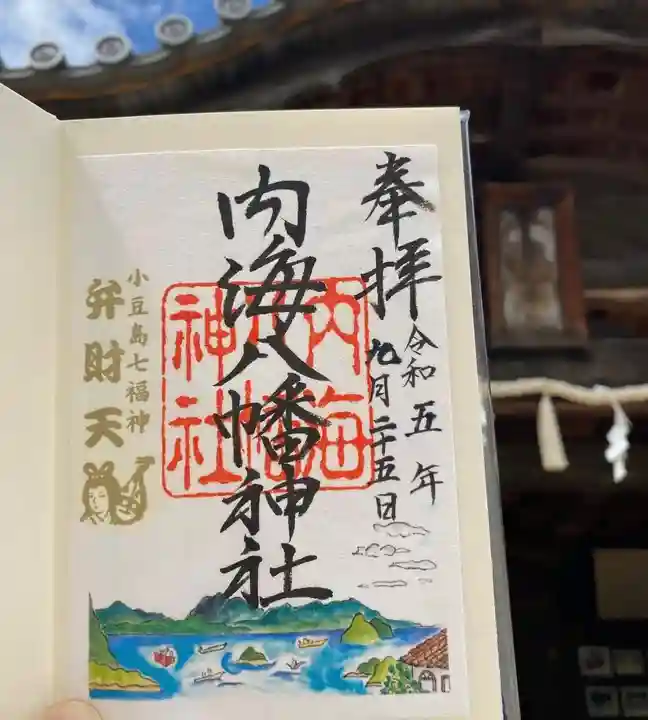 奉拝
令和五年
九月二十五日
内海八幡神社
内海
八幡
神社
小豆島七福神
弁財天